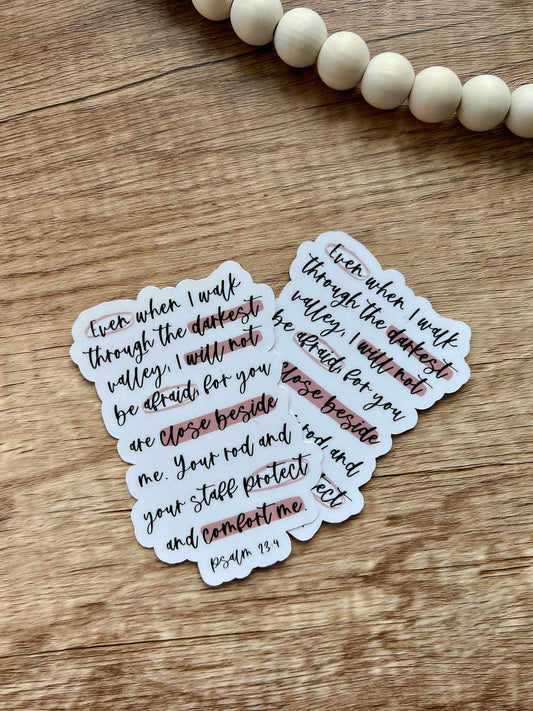 Even when I walk
through the darkest
valley, I will not
be afraid, for you
are close beside
me. Your rod and
your staff protect
and comfort me.
Psalm 23:4
Even when I walk
through the darkest
valley, I will not
be afraid, for you
close beside
rod, and
tect